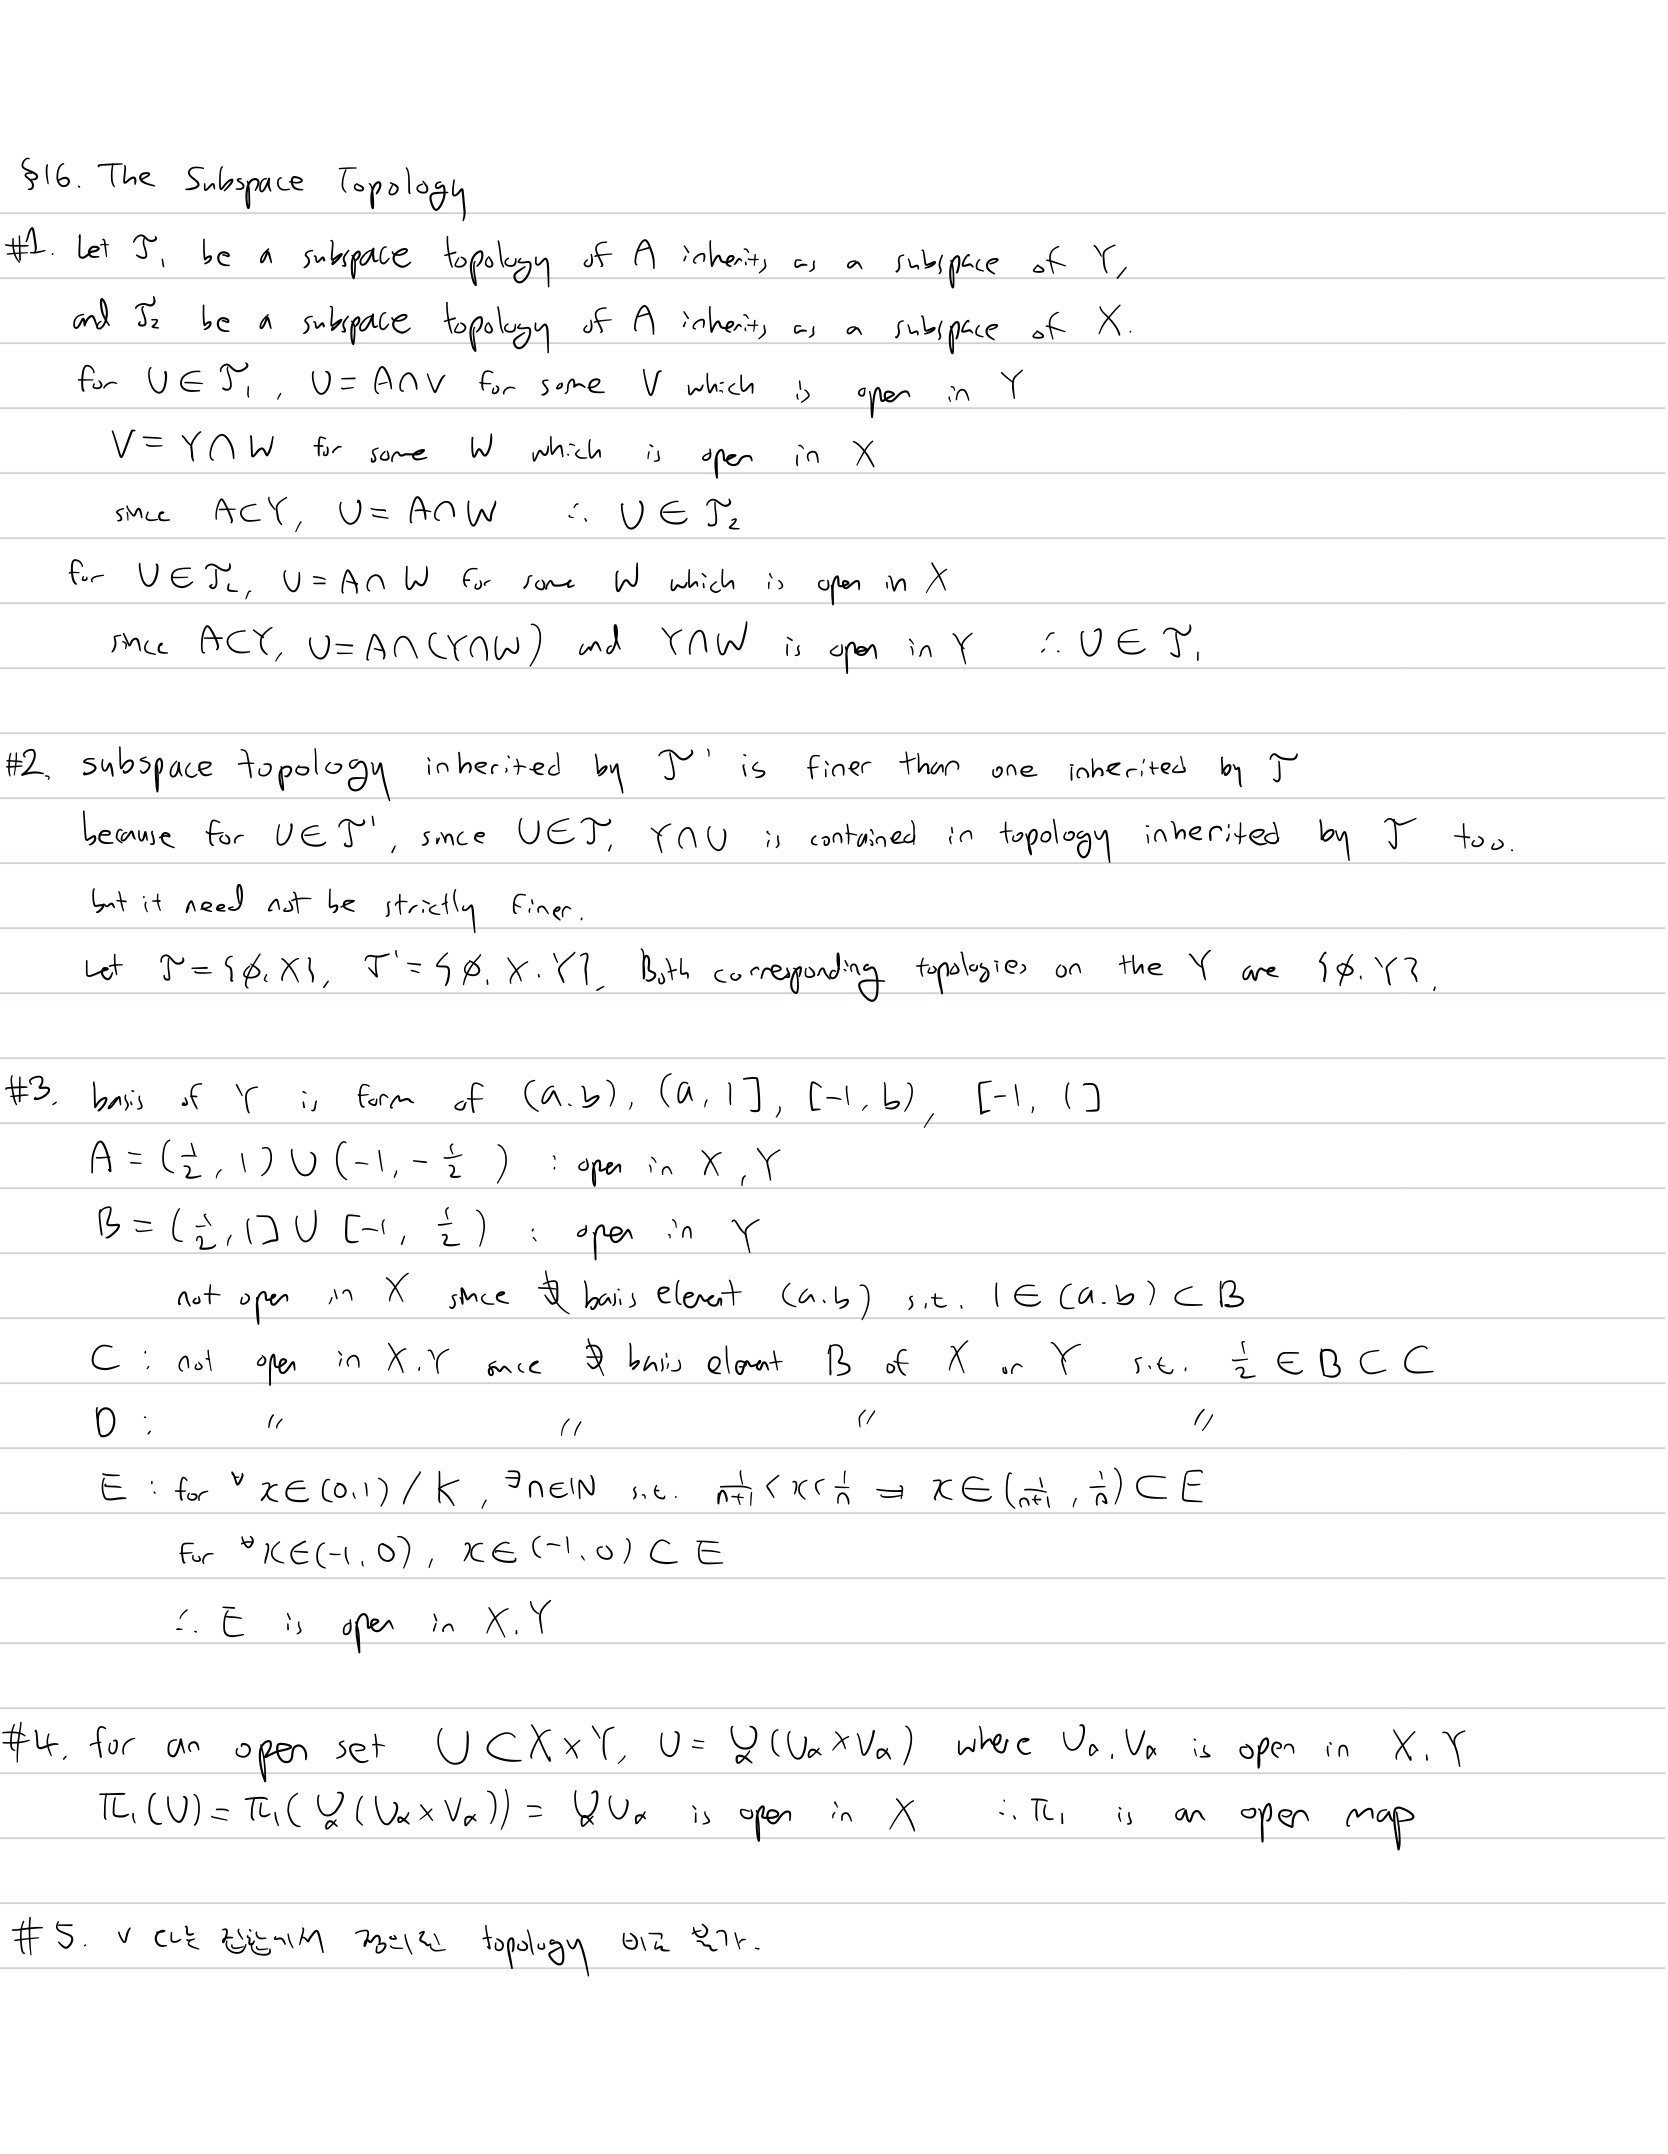 §16. The Subspace Topology
#1. Let 𝒯₁ be a subspace topology of A inherits as a subspace of Y,
and 𝒯₂ be a subspace topology of A inherits as a subspace of X.
for U∈𝒯₁, U=A∩V for some V which is open in Y
V=Y∩W for some W which is open in X
since A⊂Y, U=A∩W ∴ U∈𝒯₂
for U∈𝒯₂, U=A∩W for some W which is open in X
since A⊂Y, U=A∩(Y∩W) and Y∩W is open in Y ∴ U∈𝒯₁
#2. subspace topology inherited by 𝒯' is finer than one inherited by 𝒯
because for U∈𝒯', since U∈𝒯, Y∩U is contained in topology inherited by 𝒯 too.
but it need not be strictly finer.
Let 𝒯={∅.X}, 𝒯'={∅.X.Y}. Both corresponding topologies on the Y are {∅.Y}.
#3. basis of Y is form of (a.b), (a,1], [-1,b), [-1,1]
A=(1/2,1)∪(-1,-1/2) : open in X,Y
B=(1/2,1]∪[-1,1/2) : open in Y
not open in X since ∄ basis element (a.b) s.t. 1∈(a.b)⊂B
C : not open in X.Y since ∄ basis element B of X or Y s.t. 1/2∈B⊂C
D : 〃 〃 〃 〃
E : for ∀x∈(0.1)/K, ∃n∈ℕ s.t. 1/(n+1)<x<1/n ⇒ x∈(1/(n+1),1/n)⊂E
for ∀x∈(-1.0), x∈(-1.0)⊂E
∴ E is open in X.Y
#4. for an open set U⊂X×Y, U=∪_α(U_α×V_α) where U_α.V_α is open in X.Y
π₁(U)=π₁(∪_α(U_α×V_α))=∪_α U_α is open in X ∴ π₁ is an open map
#5. 집합에서 정의된 topology 비교 불가.